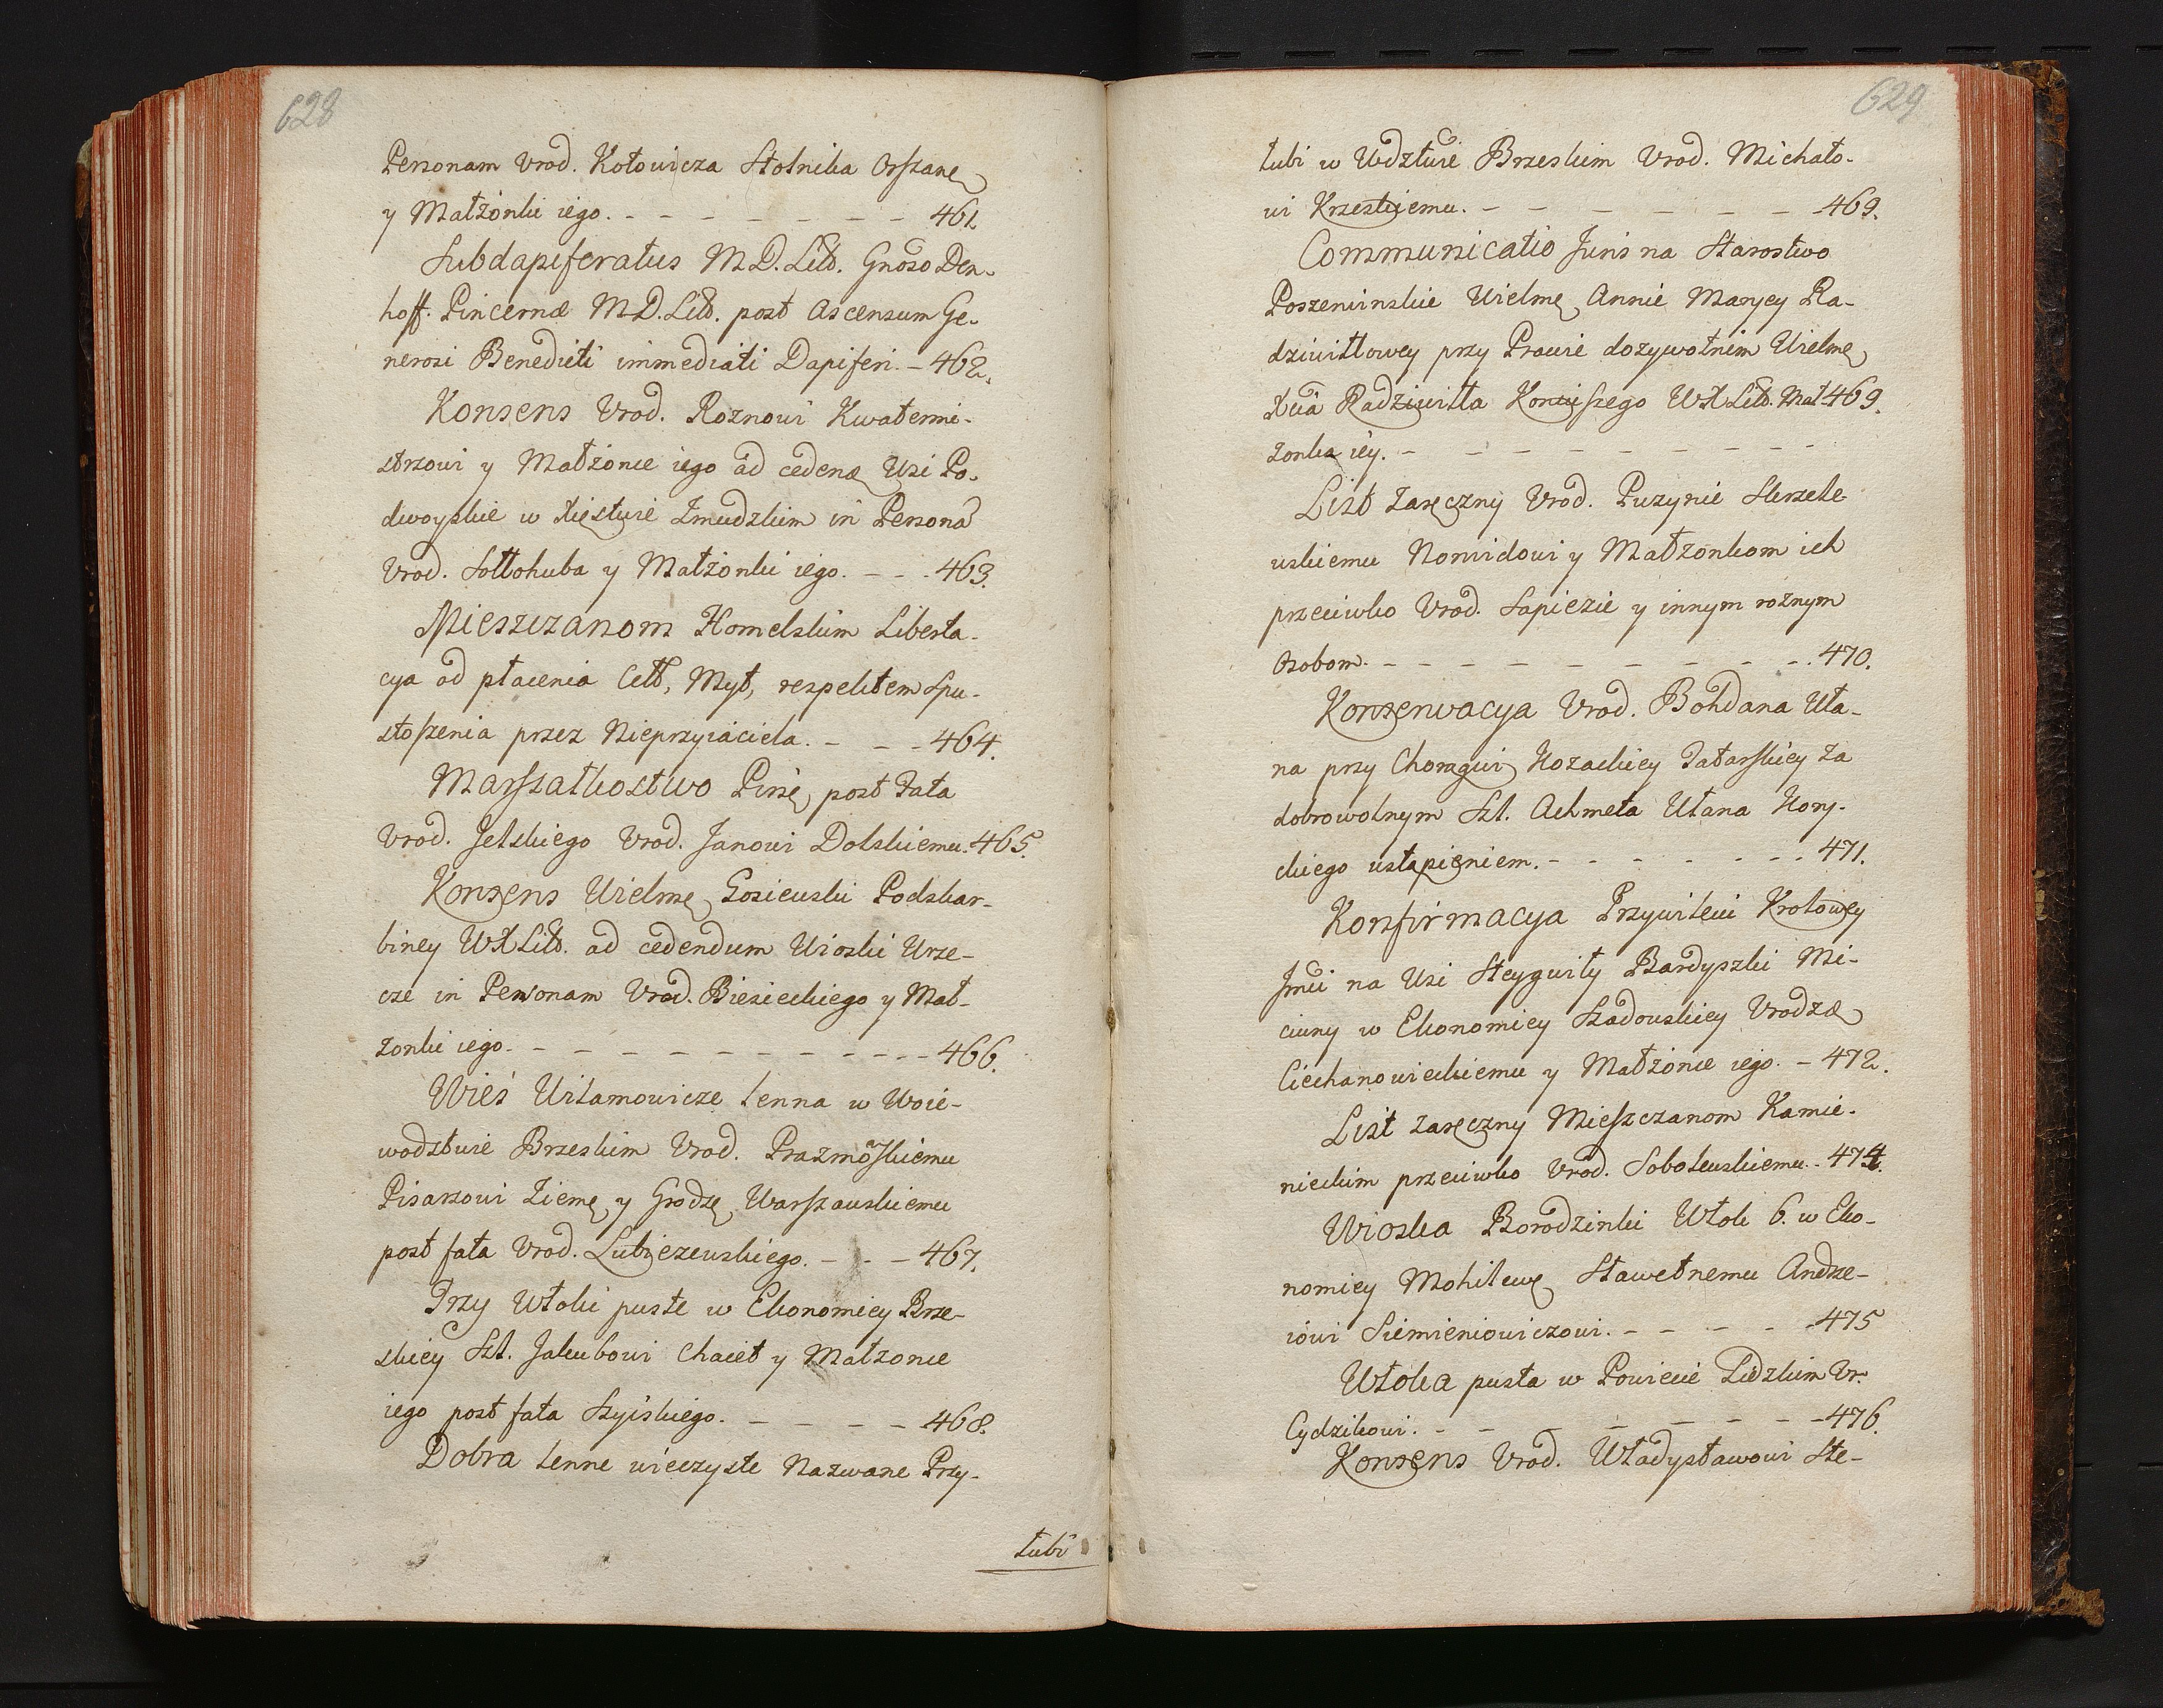 628
Personam Vrod. Kotowicza Stolnika Orszanę
y Małżonki iego. - - - - - - - 461.
Subdapiferatus M.D.Litt. Gnoso Den-
hoff. Pincernæ M.D.Litt. post Ascensum Ge-
nerosi Benedicti immediati Dapiferi. - 462.
Konsens Vrod. Roznowi Kwatermi-
strzowi y Małżonce iego ad cedenę Wsi Po-
dwoyskie w Xięstwie Zmudzkim in Persona
Vrod. Sołłohuba y Małżonki iego. - - - 463.
Mieszczanom Homelskim Liberta-
cya od płacenia Cełł, Myt, respektem Spu-
stoszenia przez Nieprzyiaciela. - - - 464.
Marszałkostwo Pinsę post Fata
Vrod. Jelskiego Vrod. Janowi Dolskiemu. 465.
Konsens Wielmę Gosiewski Podskar-
biney WXLitt. ad cedendum Wioski Urze-
cze in Personam Vrod. Biesieckiego y Mał-
żonki iego. - - - - - - - - - - 466.
Wieś Witamowicze lenna w Woie-
wodztwie Brzeskim Vrod. Prazmoskiemu
Pisarzowi Ziemę y Grodzę Warszawskiemu
post fata Vrod. Lubiezewskiego. - - - 467.
Trzy Włoki puste w Ekonomiey Brze-
skiey Szl. Jakubowi Chaiet y Małzonce
iego post fata Szyiskiego. - - - - - 468.
Dobra lenne wieczyste Nazwane Przy-
łubi
629
łubi w Wdztwie Brzeskim Vrod. Michało-
wi Krzeskiemu. - - - - - - - 469.
Communicatio Juris na Starostwo
Poszenwinskie Wielmę Annie Maryey Ra-
dziwiłłowey przy Prawie dozywotnim Wielmę
Xcia Radziwiłła Koniuszego WXLitt. Mał- 469.
zonka iey. - - - - - - - -
List Zaręczny Vrod. Puzynie Skrzete
uskiemu Nornidowi y Małzonkom ich
przeciwko Vrod. Sapiezie y innym roznym
Osobom. - - - - - - - - - 470.
Konserwacya Vrod. Bohdana Uła-
na przy Choragwi Kozackiey Tatarskiey za
dobrowolnym Szl. Achmeta Ułana Kory-
ckiego ustąpieniem. - - - - - - - 471.
Konfirmacya Przywileiu Krolowey
Jmci na Wsi Steygwiły Bardyszki Mi-
ciuny w Ekonomiey Szadowskiey Vrodzę
Ciechanowieckiemu y Małżonce iego. - 472.
List Zaręczny Mieszczanom Kamie-
nieckim przeciwko Vrod. Sobolewskiemu. - 474.
Wioska Borodzinki Włok 6. w Eko-
nomiey Mohilewę Sławetnemu Andrze-
iowi Siemieniowiczowi. - - - - - 475
Włoka pusta w Powiecie Lidzkim Vr.
Cydzikowi. - - - - - - - - 476.
Konsens Vrod. Władysławowi Ste-